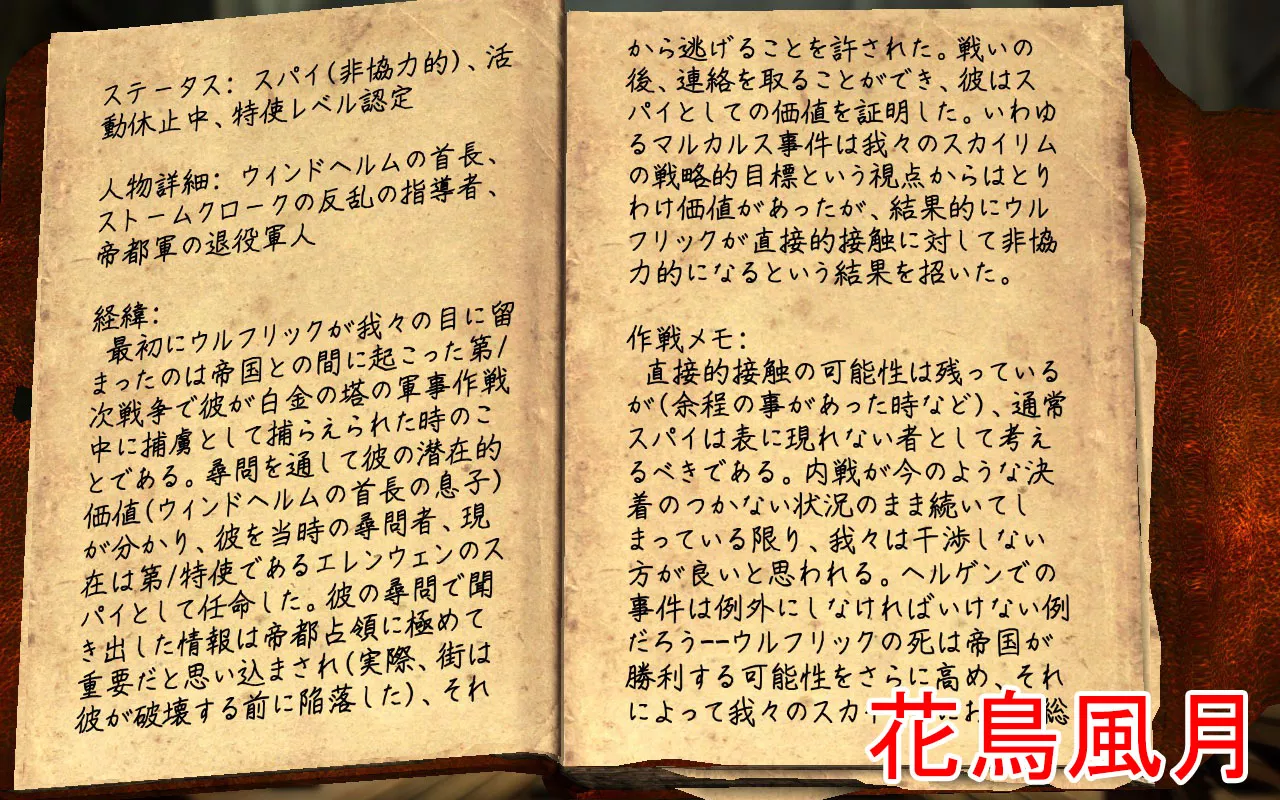 ステータス: スパイ(非協力的)、活
動休止中、特使レベル認定
人物詳細: ウィンドヘルムの首長、
ストームクロークの反乱の指導者、
帝都軍の退役軍人
経緯:
最初にウルフリックが我々の目に留
まったのは帝国との間に起こった第1
次戦争で彼が白金の塔の軍事作戦
中に捕虜として捕らえられた時のこ
とである。尋問を通して彼の潜在的
価値(ウィンドヘルムの首長の息子)
が分かり、彼を当時の尋問者、現
在は第1特使であるエレンウェンのス
パイとして任命した。彼の尋問で聞
き出した情報は帝都占領に極めて
重要だと思い込まされ(実際、街は
彼が破壊する前に陥落した)、それ
から逃げることを許された。戦いの
後、連絡を取ることができ、彼はス
パイとしての価値を証明した。いわゆ
るマルカルス事件は我々のスカイリム
の戦略的目標という視点からはとり
わけ価値があったが、結果的にウル
フリックが直接的接触に対して非協
力的になるという結果を招いた。
作戦メモ:
直接的接触の可能性は残っている
が(余程の事があった時など)、通常
スパイは表に現れない者として考え
るべきである。内戦が今のような決
着のつかない状況のまま続いてし
まっている限り、我々は干渉しない
方が良いと思われる。ヘルゲンでの
事件は例外にしなければいけない例
だろう--ウルフリックの死は帝国が
勝利する可能性をさらに高め、それ
によって我々のスカ にお 総
花鳥風月